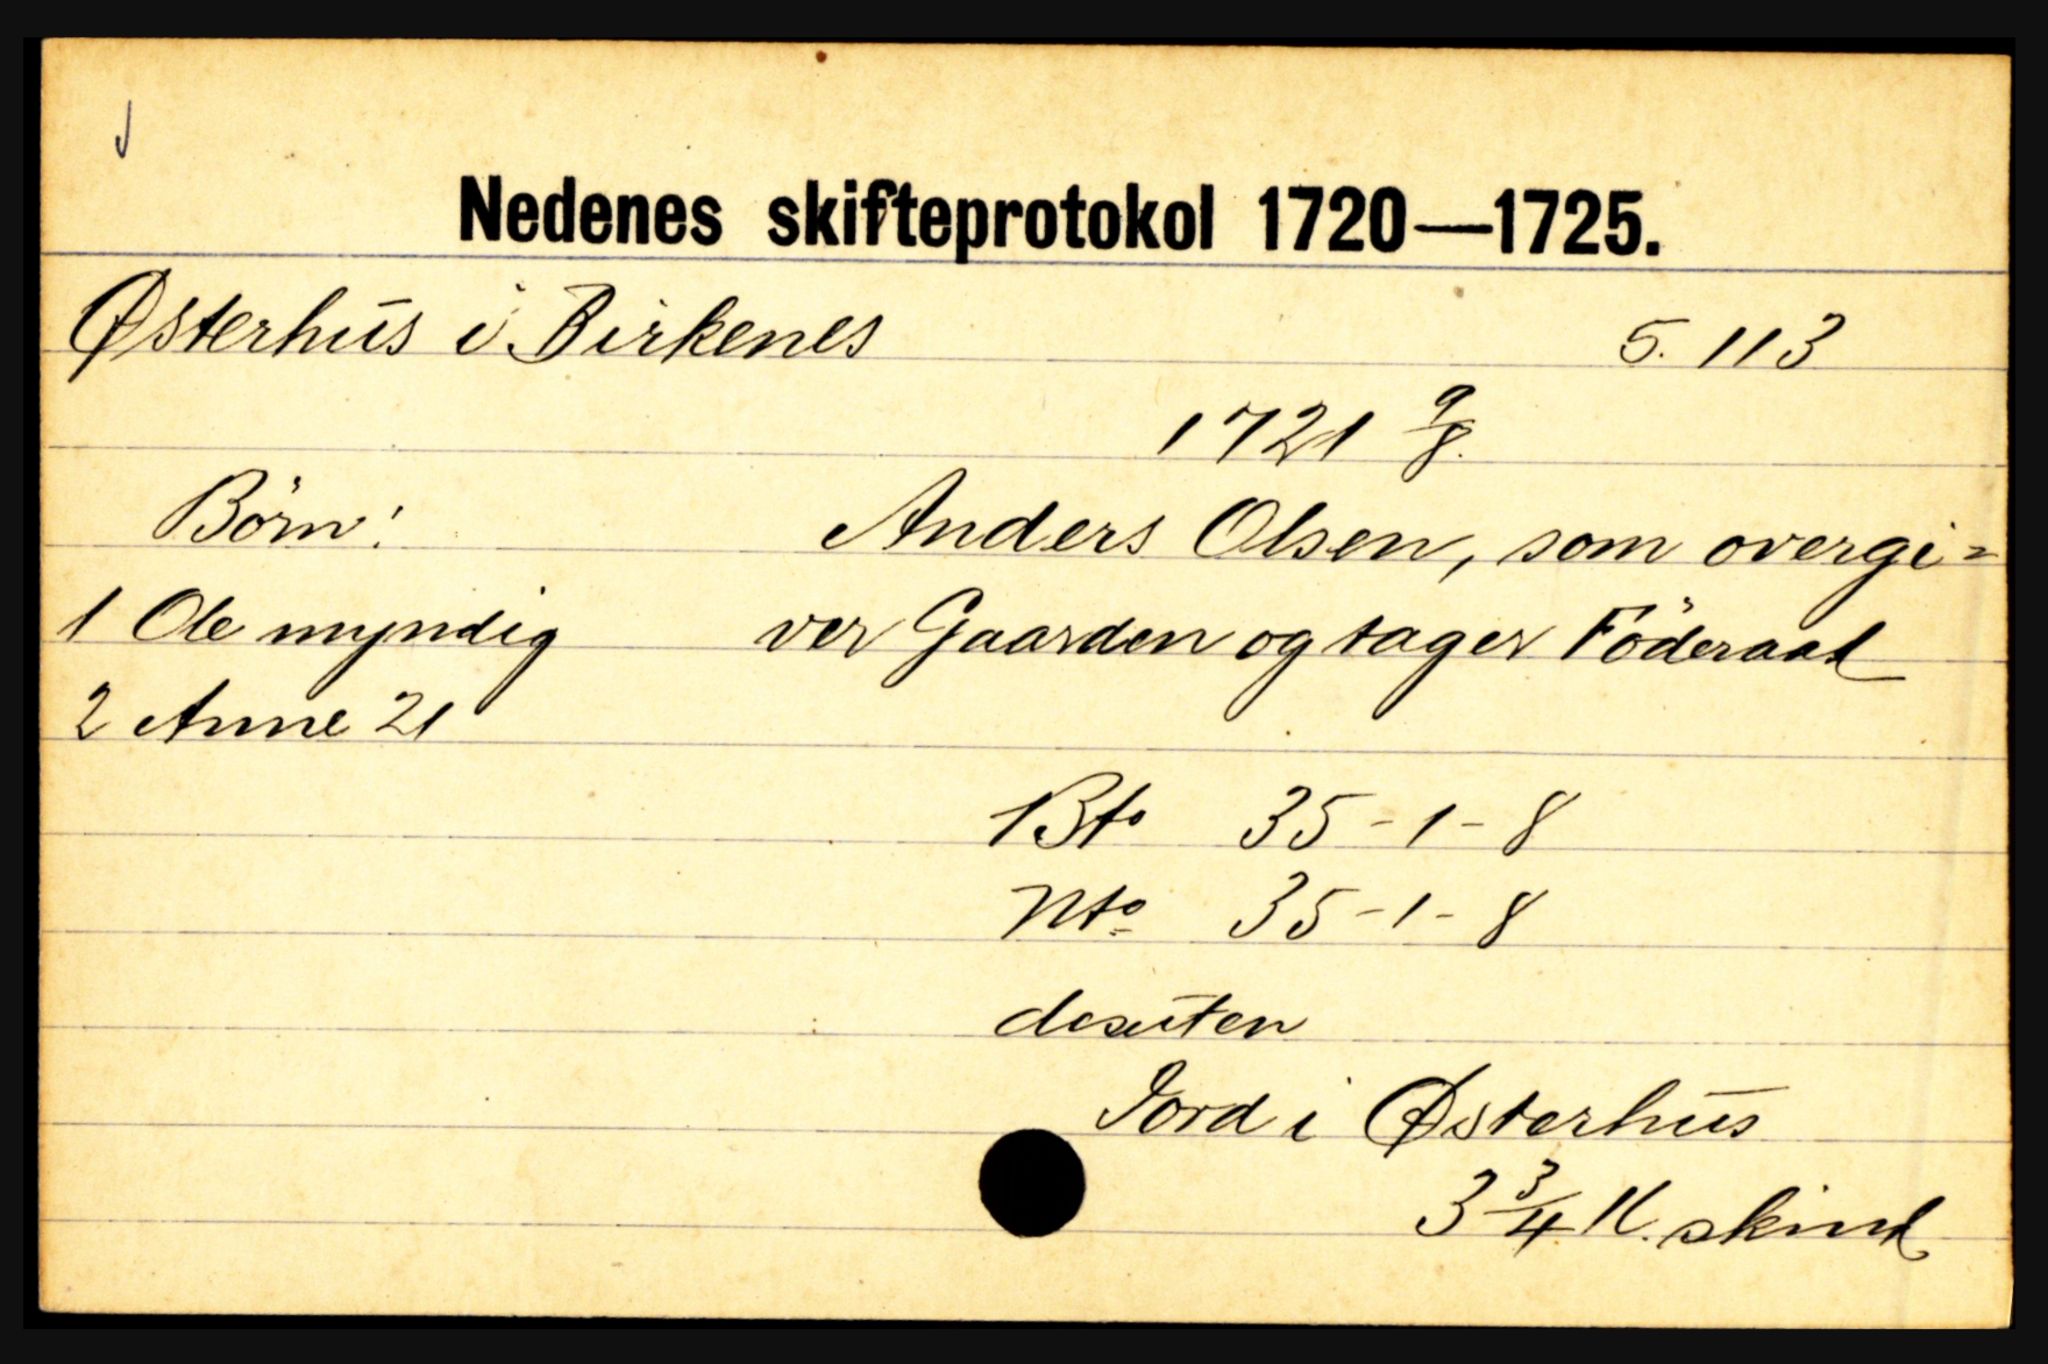 Nedenes skifteprotokol 1720—1725.
Østerhus i Birkenes 5. 113
1721 9/8.
Börn: Anders Olsen, som overgi=
1 Ole myndig ver Gaarden og tager Föderaad
2 Anne 21
Bto 35-1-8
Nto 35-1-8
desuten
Jord i Østerhus
3 3/4 K. skind